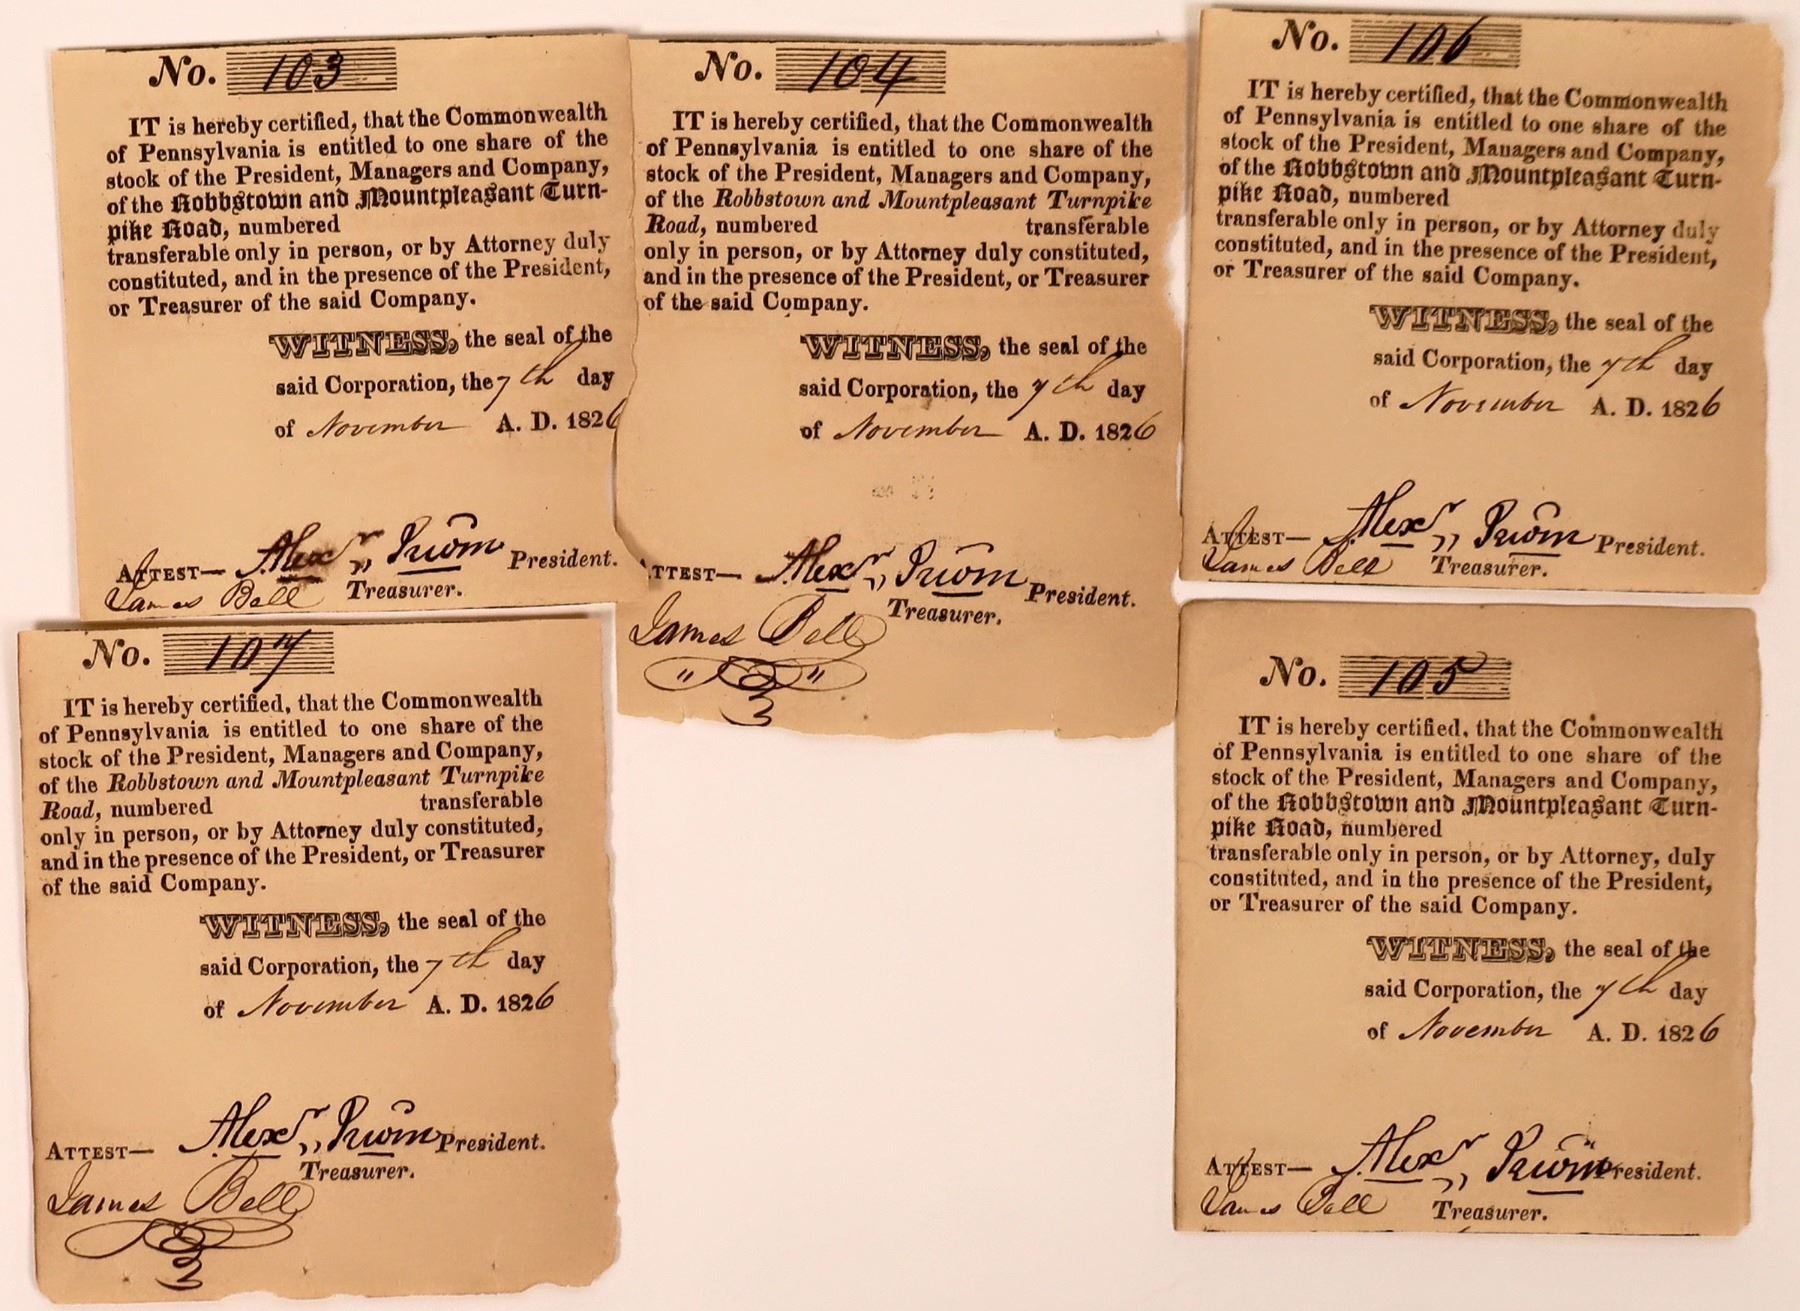 No. 103
IT is hereby certified, that the Commonwealth
of Pennsylvania is entitled to one share of the
stock of the President, Managers and Company,
of the Robbstown and Mountpleasant Turn-
pike Road, numbered
transferable only in person, or by Attorney duly
constituted, and in the presence of the President,
or Treasurer of the said Company.
WITNESS, the seal of the
said Corporation, the 7th day
of November A. D. 1826
ATTEST— Alexr Irwin President.
James Bell Treasurer.
No. 104
IT is hereby certified, that the Commonwealth
of Pennsylvania is entitled to one share of the
stock of the President, Managers and Company,
of the Robbstown and Mountpleasant Turnpike
Road, numbered transferable
only in person, or by Attorney duly constituted,
and in the presence of the President, or Treasurer
of the said Company.
WITNESS, the seal of the
said Corporation, the 7th day
of November A. D. 1826
ATTEST— Alexr Irwin President.
James Bell Treasurer.
No. 106
IT is hereby certified, that the Commonwealth
of Pennsylvania is entitled to one share of the
stock of the President, Managers and Company,
of the Robbstown and Mountpleasant Turn-
pike Road, numbered
transferable only in person, or by Attorney duly
constituted, and in the presence of the President,
or Treasurer of the said Company.
WITNESS, the seal of the
said Corporation, the 7th day
of November A. D. 1826
ATTEST— Alexr Irwin President.
James Bell Treasurer.
No. 107
IT is hereby certified, that the Commonwealth
of Pennsylvania is entitled to one share of the
stock of the President, Managers and Company,
of the Robbstown and Mountpleasant Turnpike
Road, numbered transferable
only in person, or by Attorney duly constituted,
and in the presence of the President, or Treasurer
of the said Company.
WITNESS, the seal of the
said Corporation, the 7th day
of November A. D. 1826
ATTEST— Alexr Irwin President.
James Bell Treasurer.
No. 105
IT is hereby certified, that the Commonwealth
of Pennsylvania is entitled to one share of the
stock of the President, Managers and Company,
of the Robbstown and Mountpleasant Turn-
pike Road, numbered
transferable only in person, or by Attorney, duly
constituted, and in the presence of the President,
or Treasurer of the said Company.
WITNESS, the seal of the
said Corporation, the 7th day
of November A. D. 1826
ATTEST— Alexr Irwin President.
James Bell Treasurer.